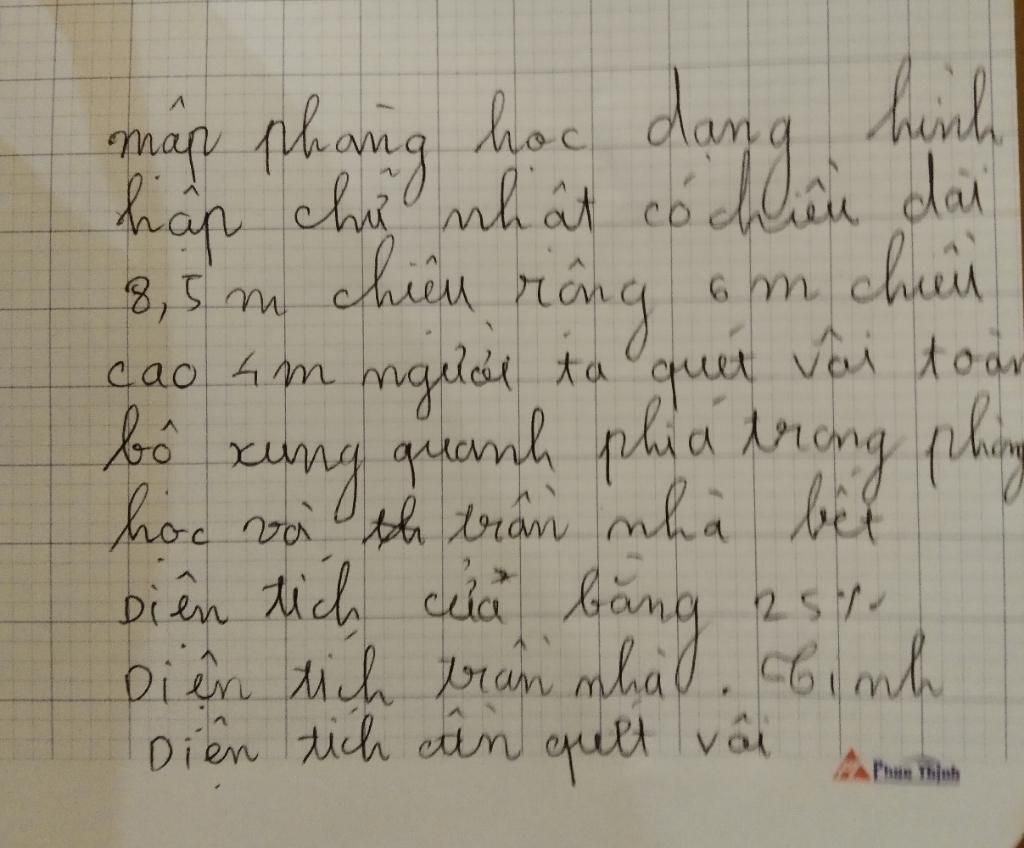 mâp phòng học dạng hình
hập chữ nhật có chiều dài
8,5 m chiêu rông 6 m chiều
cao 4m người ta quét vôi toàn
bô xung quanh phía trong phòng
học và th trần nhà biết
Diên tích của băng 25%
Diện tích trần nhà. Tính
Diện tích cần quét vôi
Phúc Thịnh